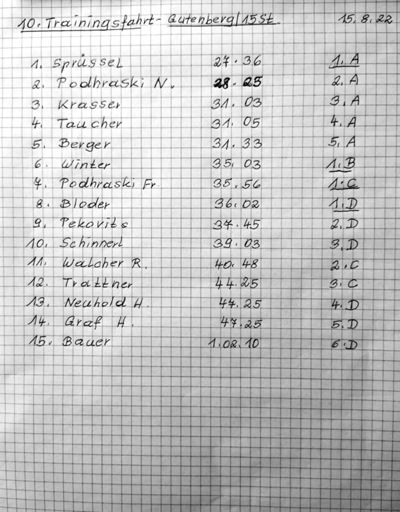 10. Trainingsfahrt - Gutenberg/15St. 15.8.22
1. Sprüssel 27.36 1. A
2. Podhraski N. 28.25 2. A
3. Krasser 31.03 3. A
4. Taucher 31.05 4. A
5. Berger 31.33 5. A
6. Winter 35.03 1. B
7. Podhraski Fr 35.56 1. C
8. Bloder 36.02 1. D
9. Pekovits 37.45 2. D
10. Schinnerl 39.03 3. D
11. Walcher R. 40.48 2. C
12. Trattner 44.25 3. C
13. Neuhold H. 47.25 4. D
14. Graf H. 47.25 5. D
15. Bauer 1.02.10 6. D